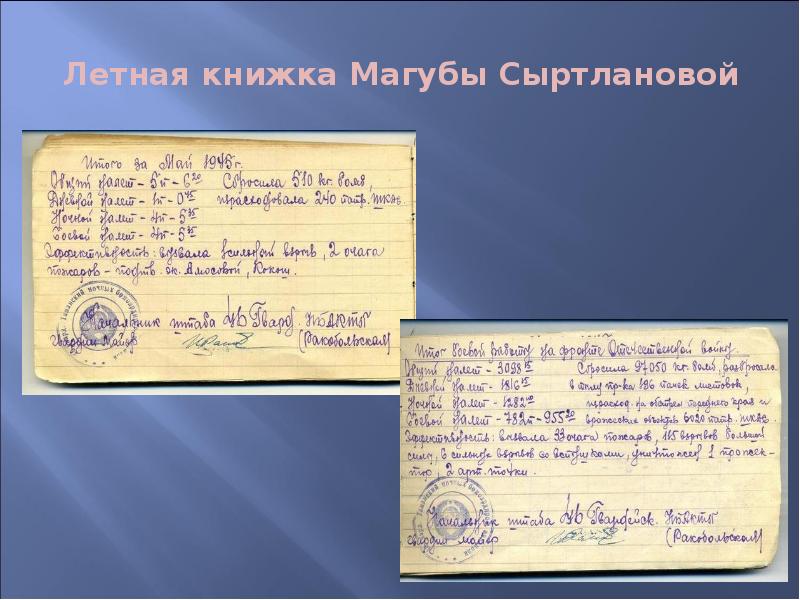 Летная книжка Магубы Сыртлановой
Итого за Май 1945г.
Общий налет - 5п - 6²⁰ Сбросила 510 кг. бомб,
Дневной налет - 1п - 0⁴⁵ израсходовала 240 патр. ШКАС.
Ночной налет - 4п - 5³⁵
Боевой налет - 4п - 5³⁵
Эффективность: вызвала сильный взрыв, 2 очага
пожаров - подтв. эк. Амосовой, Кокош.
Начальник штаба 46 Гвард. НБАКТП
гвардии майор (Ракобольская)
Итог боевой работы на фронте Отечественной войны.
Общий налет - 3098¹⁵ Сбросила 97050 кг. бомб, разбросала
Дневной налет - 1816¹⁵ в тылу пр-ка 196 пачек листовок,
Ночной налет - 1282⁰⁰ израсход. на обстрел переднего края и
Боевой налет - 782п - 955²⁰ вражеских объектов 6020 патр. ШКАС.
Эффективность: вызвала 33 очага пожаров, 115 взрывов большой
силы, 6 сильных взрывов со вспышками, уничтожен 1 прожек-
тор, 2 арт. точки.
Начальник штаба 46 Гвардейск. НБАКТП
гвардии майор (Ракобольская)